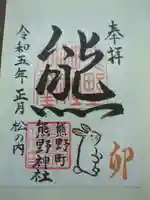 奉拝
卯
熊
熊野町
熊野神社
令和五年正月
松の内